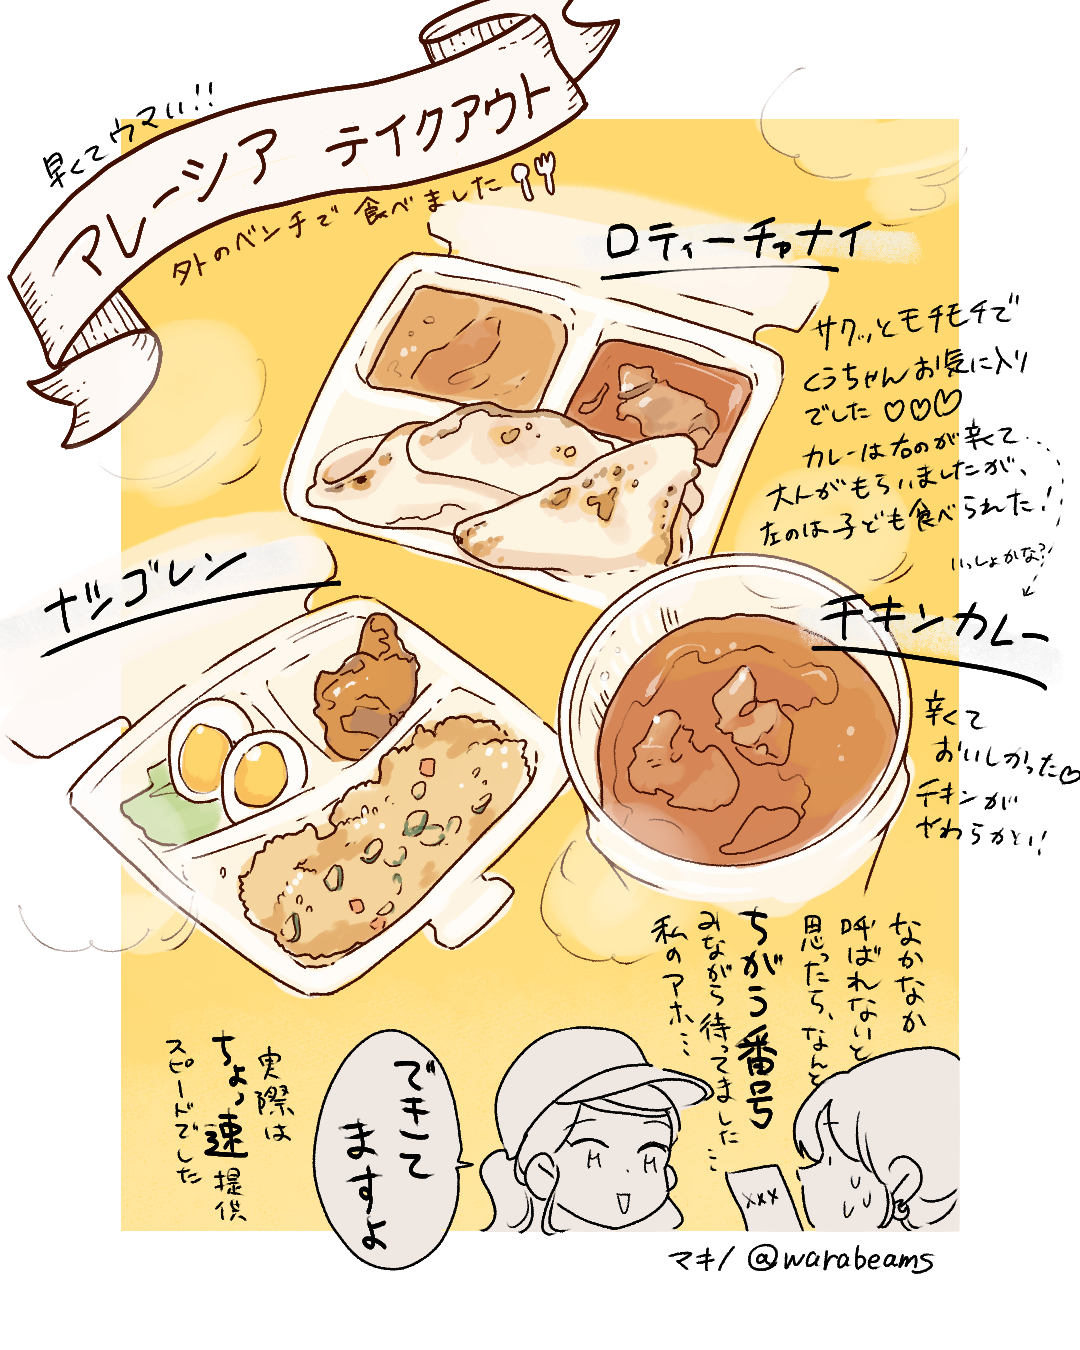 早くてウマい!!
マレーシア テイクアウト
外のベンチで食べました
ロティーチャナイ
サクッとモチモチで
くうちゃんお気に入り
でした♡♡♡
カレーは右のが辛くて…
大人がもらいましたが、
左のは子ども食べられた!
いっしょかな?
ナシゴレン
チキンカレー
辛くて
おいしかった♡
チキンが
やわらかい!
なかなか
呼ばれないと
思ったら、なんと
ちがう番号
みながら待ってました…
私のアホ…
できて
ますよ
実際は
ちょっ速提供
スピードでした
xxx
マキノ @warabeams